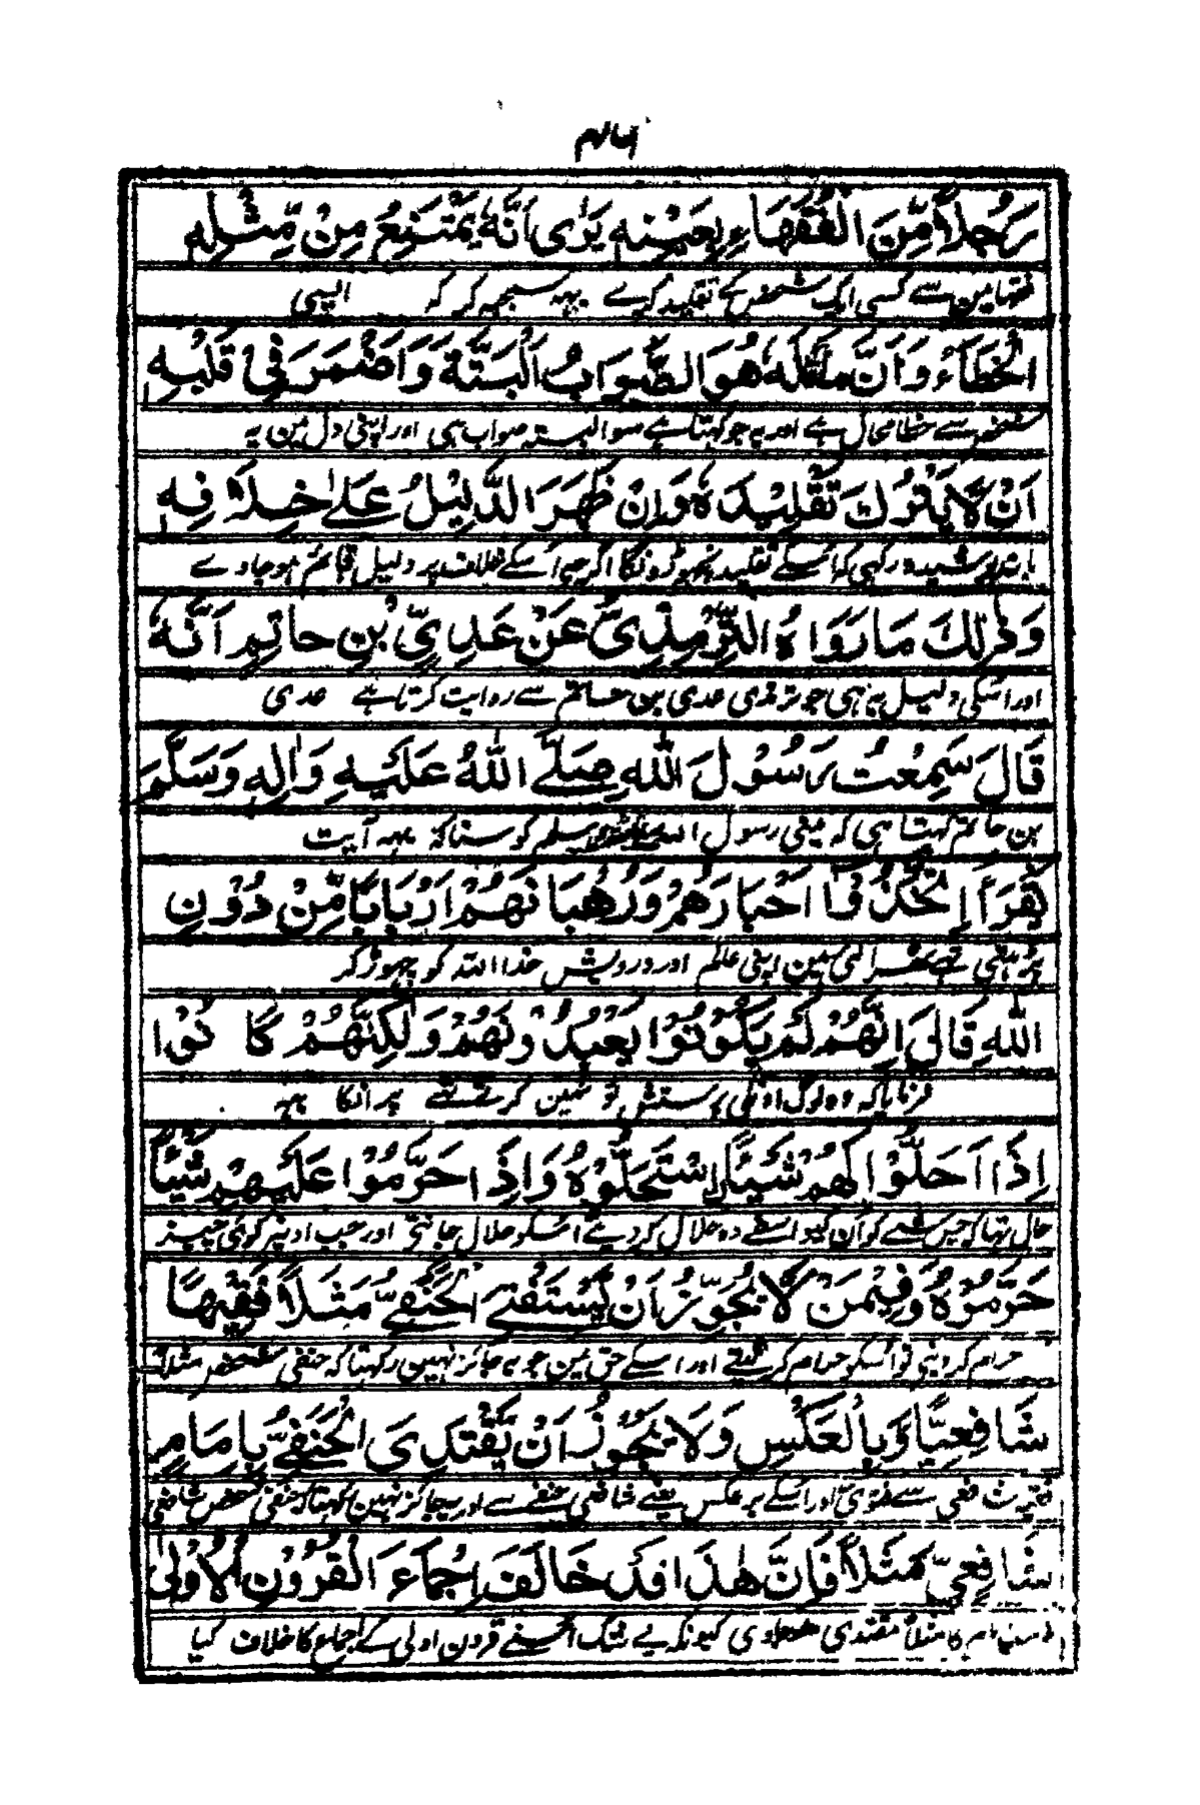 رَجُلًا مِّنَ الْفُقَهَاءِ بِعَيْنِهٖ يَرٰى اَنَّهٗ يَمْتَنِعُ مِنْ مِّثْلِهٖ
فقہا مین سے کسی ایک شخص کے تقلید کرے یہہ سمجہہ کر کہ ایسی
الْخَطَاءُ وَاَنَّ مَا قَالَهٗ هُوَ الصَّوَابُ اَلْبَتَّةَ وَاَضْمَرَ فِيْ قَلْبِهٖ
شخص سے خطا محال ہے اور یہ جو کہتا ہے سو البتہ صواب ہی اور اپنی دل مین یہ
اَنْ لَّا يَتْرُكَ تَقْلِيْدَهٗ وَاِنْ ظَهَرَ الدَّلِيْلُ عَلٰى خِلَافِهٖ
پوشیدہ رکہی کہ اسکے تقلید نچہوڑونگا اگرچہ اسکے خلاف پر دلیل قائم ہو جاوے
وَذٰلِكَ مَا رَوَاهُ التِّرْمِذِيُّ عَنْ عَدِيِّ بْنِ حَاتِمٍ اَنَّهٗ
اور اسکی دلیل یہ ہی جو ترمذی عدی بن حاتم سے روایت کرتا ہے عدی
قَالَ سَمِعْتُ رَسُوْلَ اللّٰهِ صَلَّے اللّٰهُ عَلَيْهِ وَاٰلِهٖ وَسَلَّمَ
بن حاتم کہتا ہی کہ مینی رسول اللہ وسلم کو سنا کہ یہہ آیت
يَقْرَأُ اِتَّخَذُوْا اَحْبَارَهُمْ وَرُهْبَانَهُمْ اَرْبَابًا مِّنْ دُوْنِ
پڑہتی تہے ٹہرالی ہین اپنی عالم اور درویش خدا اللہ کو چہوڑ کر
اللّٰهِ قَالَ اِنَّهُمْ لَمْ يَكُوْنُوْا يَعْبُدُوْنَهُمْ وَلٰكِنَّهُمْ كَانُوْا
فرمایا کہ وہ لوگ اونکی پرستش تو نہین کرتے تہے پر انکا یہہ
اِذَا اَحَلُّوْا لَهُمْ شَيْئًا اسْتَحَلُّوْهُ وَاِذَا حَرَّمُوْا عَلَيْهِمْ شَيْئًا
حال تہا کہ جس شے کو ان کیواسطے وہ حلال کر دیتے اسکو حلال جانتی اور جب اونپر کوئی چیز
حَرَّمُوْهُ وَفِيْمَنْ لَّا يُجَوِّزُ اَنْ يَّسْتَفْتِيَ الْحَنَفِيُّ مَثَلًا فَقِيْهًا
حرام کر دیتی تو اسکو حرام کر لیتے اور اسکے حق مین جو یہ جائز نہین رکہتا کہ حنفی شخص مثلاً
شَافِعِيًّا وَبِالْعَكْسِ وَلَا يُجَوِّزُ اَنْ يَّقْتَدِيَ الْحَنَفِيُّ بِاِمَامٍ
فقیہ شافعی سے فتوی اور اسکے بر عکس یعنے شافعی حنفے سے اور یہ جائز نہین رکہتا کہ حنفی شخص شافعی
شَافِعِيٍّ مَثَلًا فَاِنَّ هٰذَا قَدْ خَالَفَ اِجْمَاعَ الْقُرُوْنِ الْاُوْلٰى
امام کا مثلاً مقتدی ہو جاوی کیونکہ بے شک اسنے قرون اولی کے اجماع کا خلاف کیا